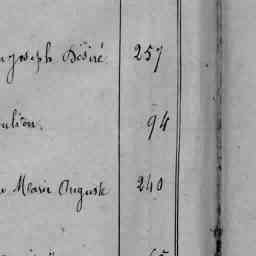 Joseph Désiré 257
94
Marie Auguste 240